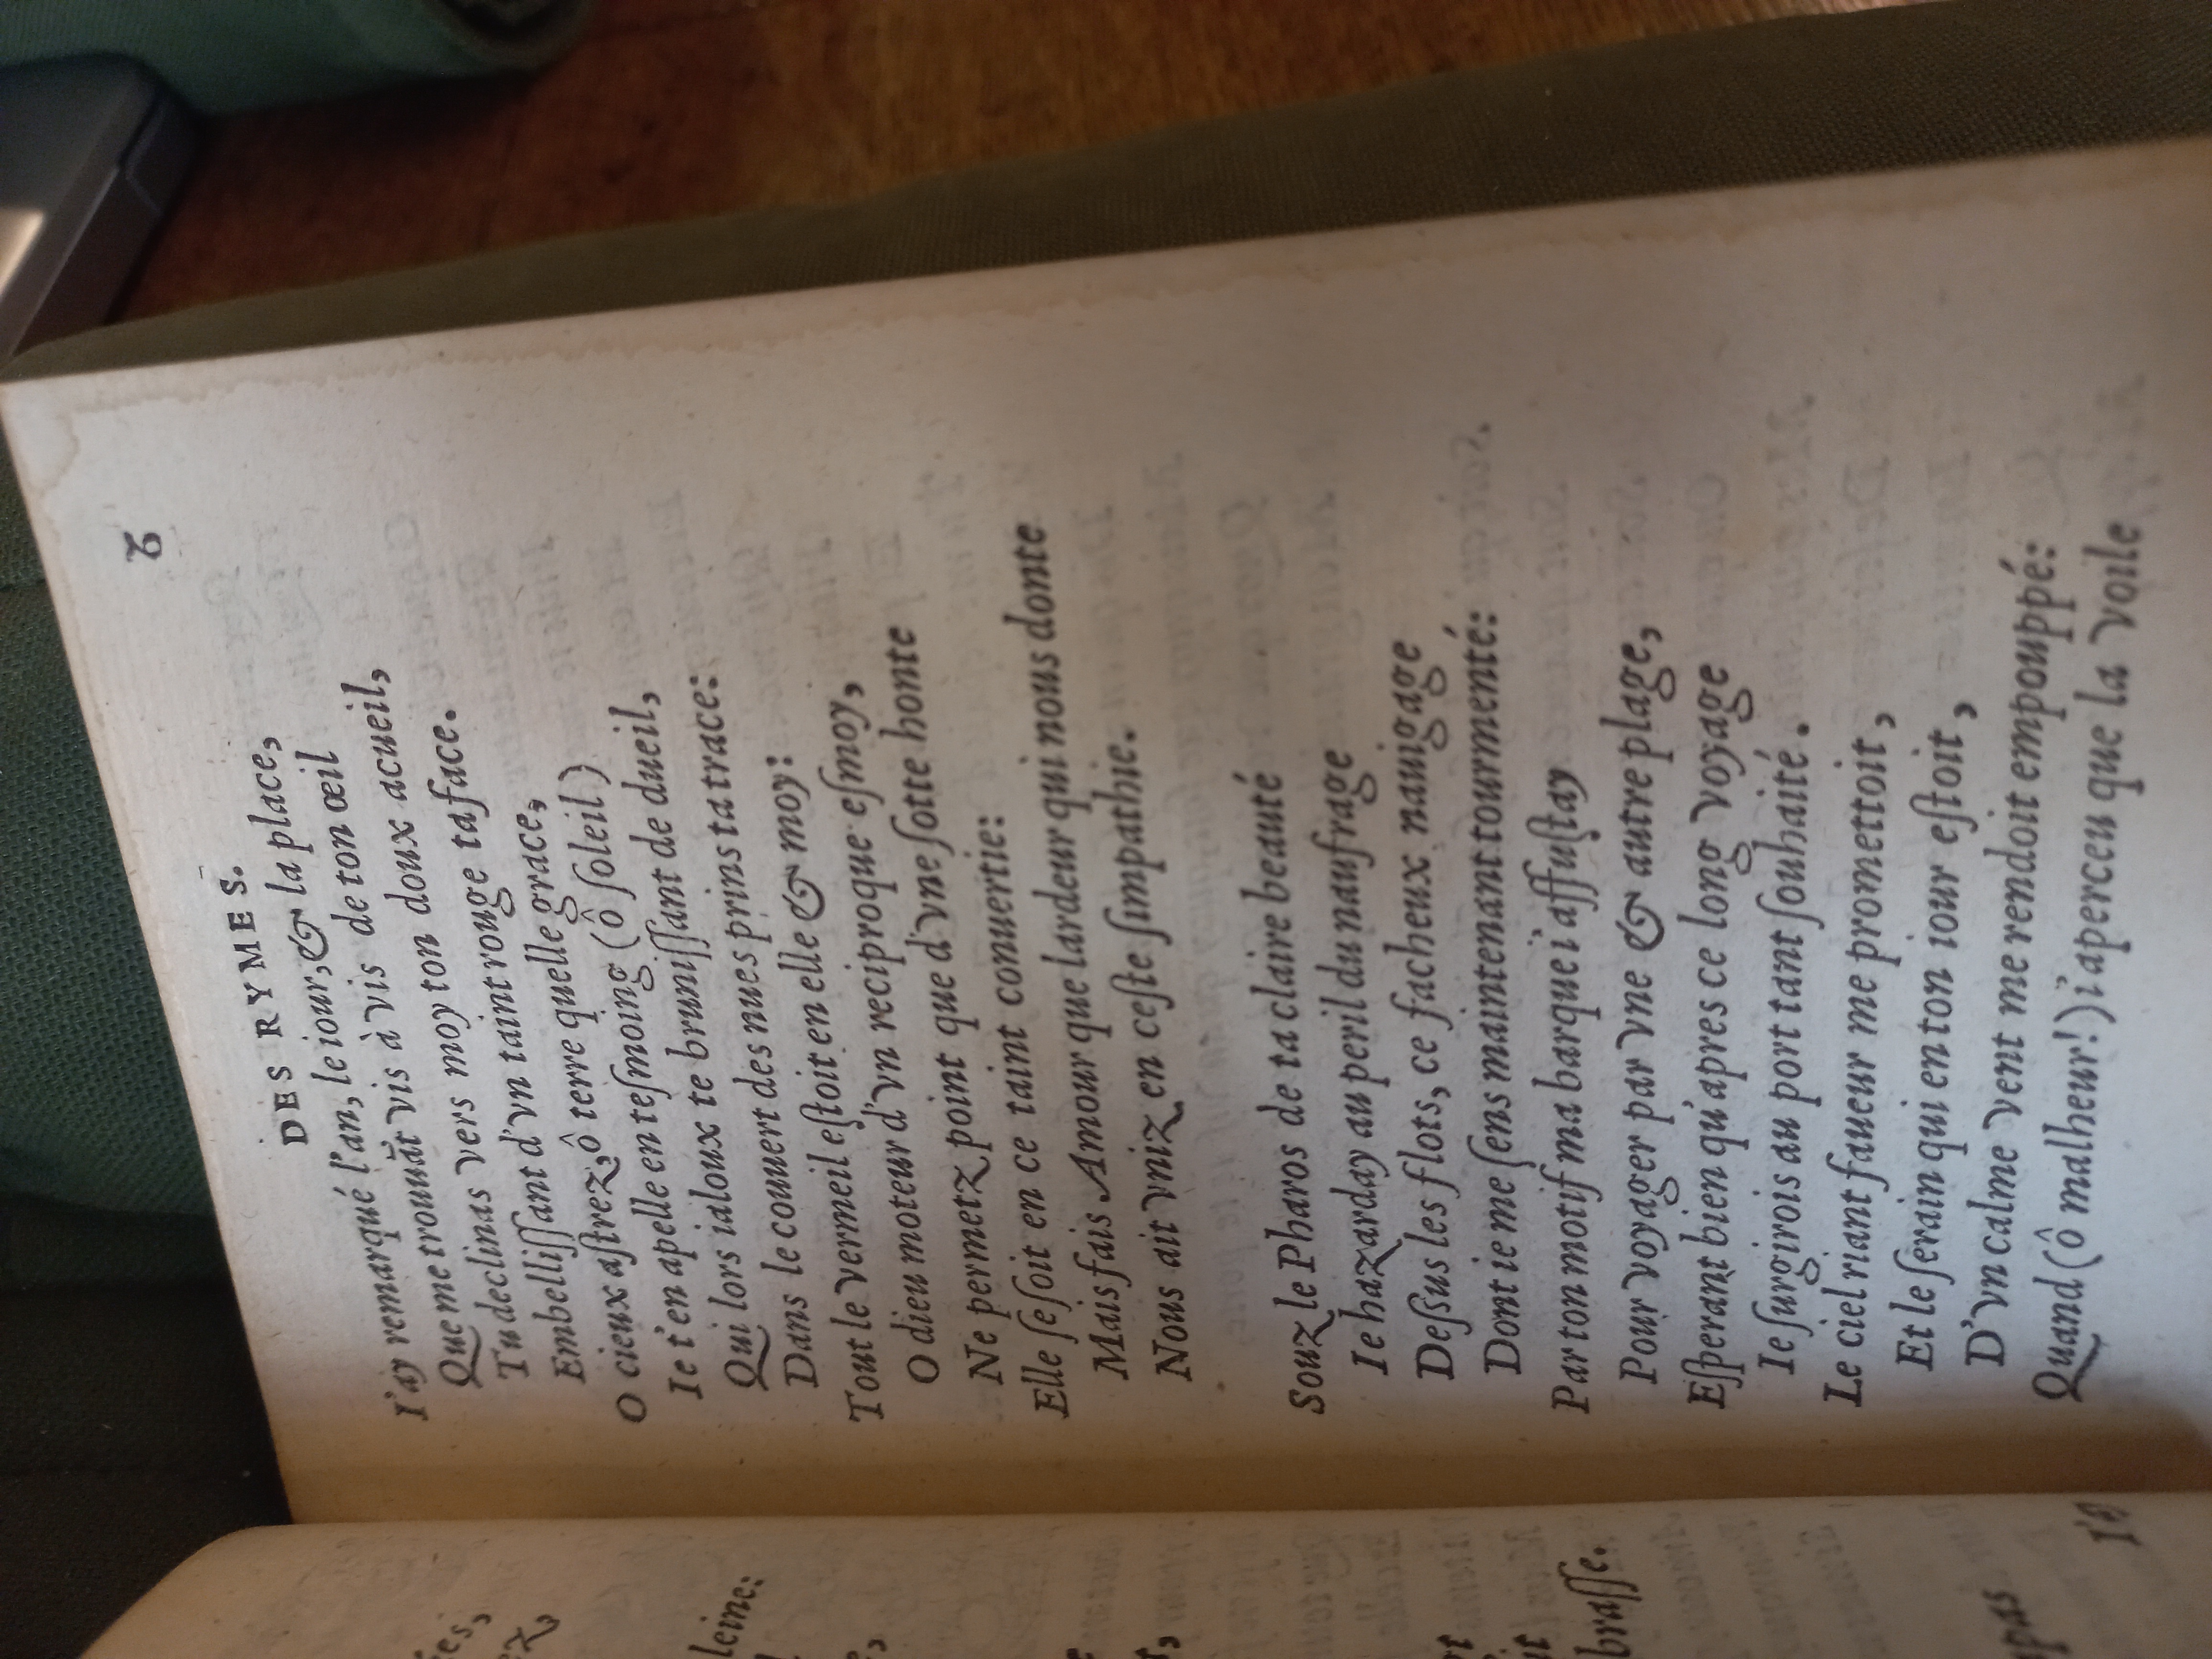 ies,
ez,
leine:
brasse.
upas
I'é
DES RYMES. 2
I'ay remarqué l'an, le iour, & la place,
Que me trouuāt vis à vis de ton œil
Tu declinas vers moy ton doux acueil,
Embellissant d'vn taint rouge ta face.
O cieux astrez, ô terre quelle grace,
Ie t'en apelle en tesmoing (ô soleil)
Qui lors ialoux te brunissant de dueil,
Dans le couuert des nues prins ta trace:
Tout le vermeil estoit en elle & moy:
O dieu moteur d'vn reciproque esmoy,
Ne permetz point que d'vne sotte honte
Elle se soit en ce taint conuertie:
Mais fais Amour que lardeur qui nous donte
Nous ait vniz en ceste simpathie.
Souz le Pharos de ta claire beauté
Ie hazarday au peril du naufrage
Dessus les flots, ce facheux nauigage
Dont ie me sens maintenant tourmenté:
Par ton motif ma barque i'affustay
Pour voyager par vne & autre plage,
Esperant bien qu'apres ce long voyage
Ie surgirois au port tant souhaité.
Le ciel riant faueur me promettoit,
Et le serain qui en ton iour estoit,
D'vn calme vent me rendoit empouppé:
Quand (ô malheur!) i'aperceu que la voile